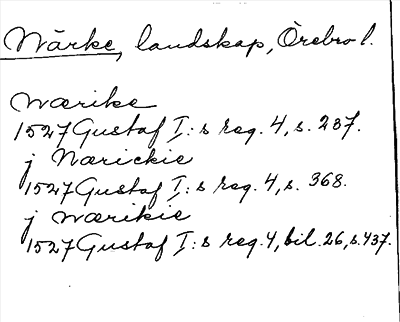 Närke, landskap, Örebro l.
Nærike
1527 Gustaf I:s reg. 4, s. 237.
j Nærickie
1527 Gustaf I:s reg. 4, s. 368.
j Nærikie
1527 Gustaf I:s reg. 4, bil. 26, s. 437.